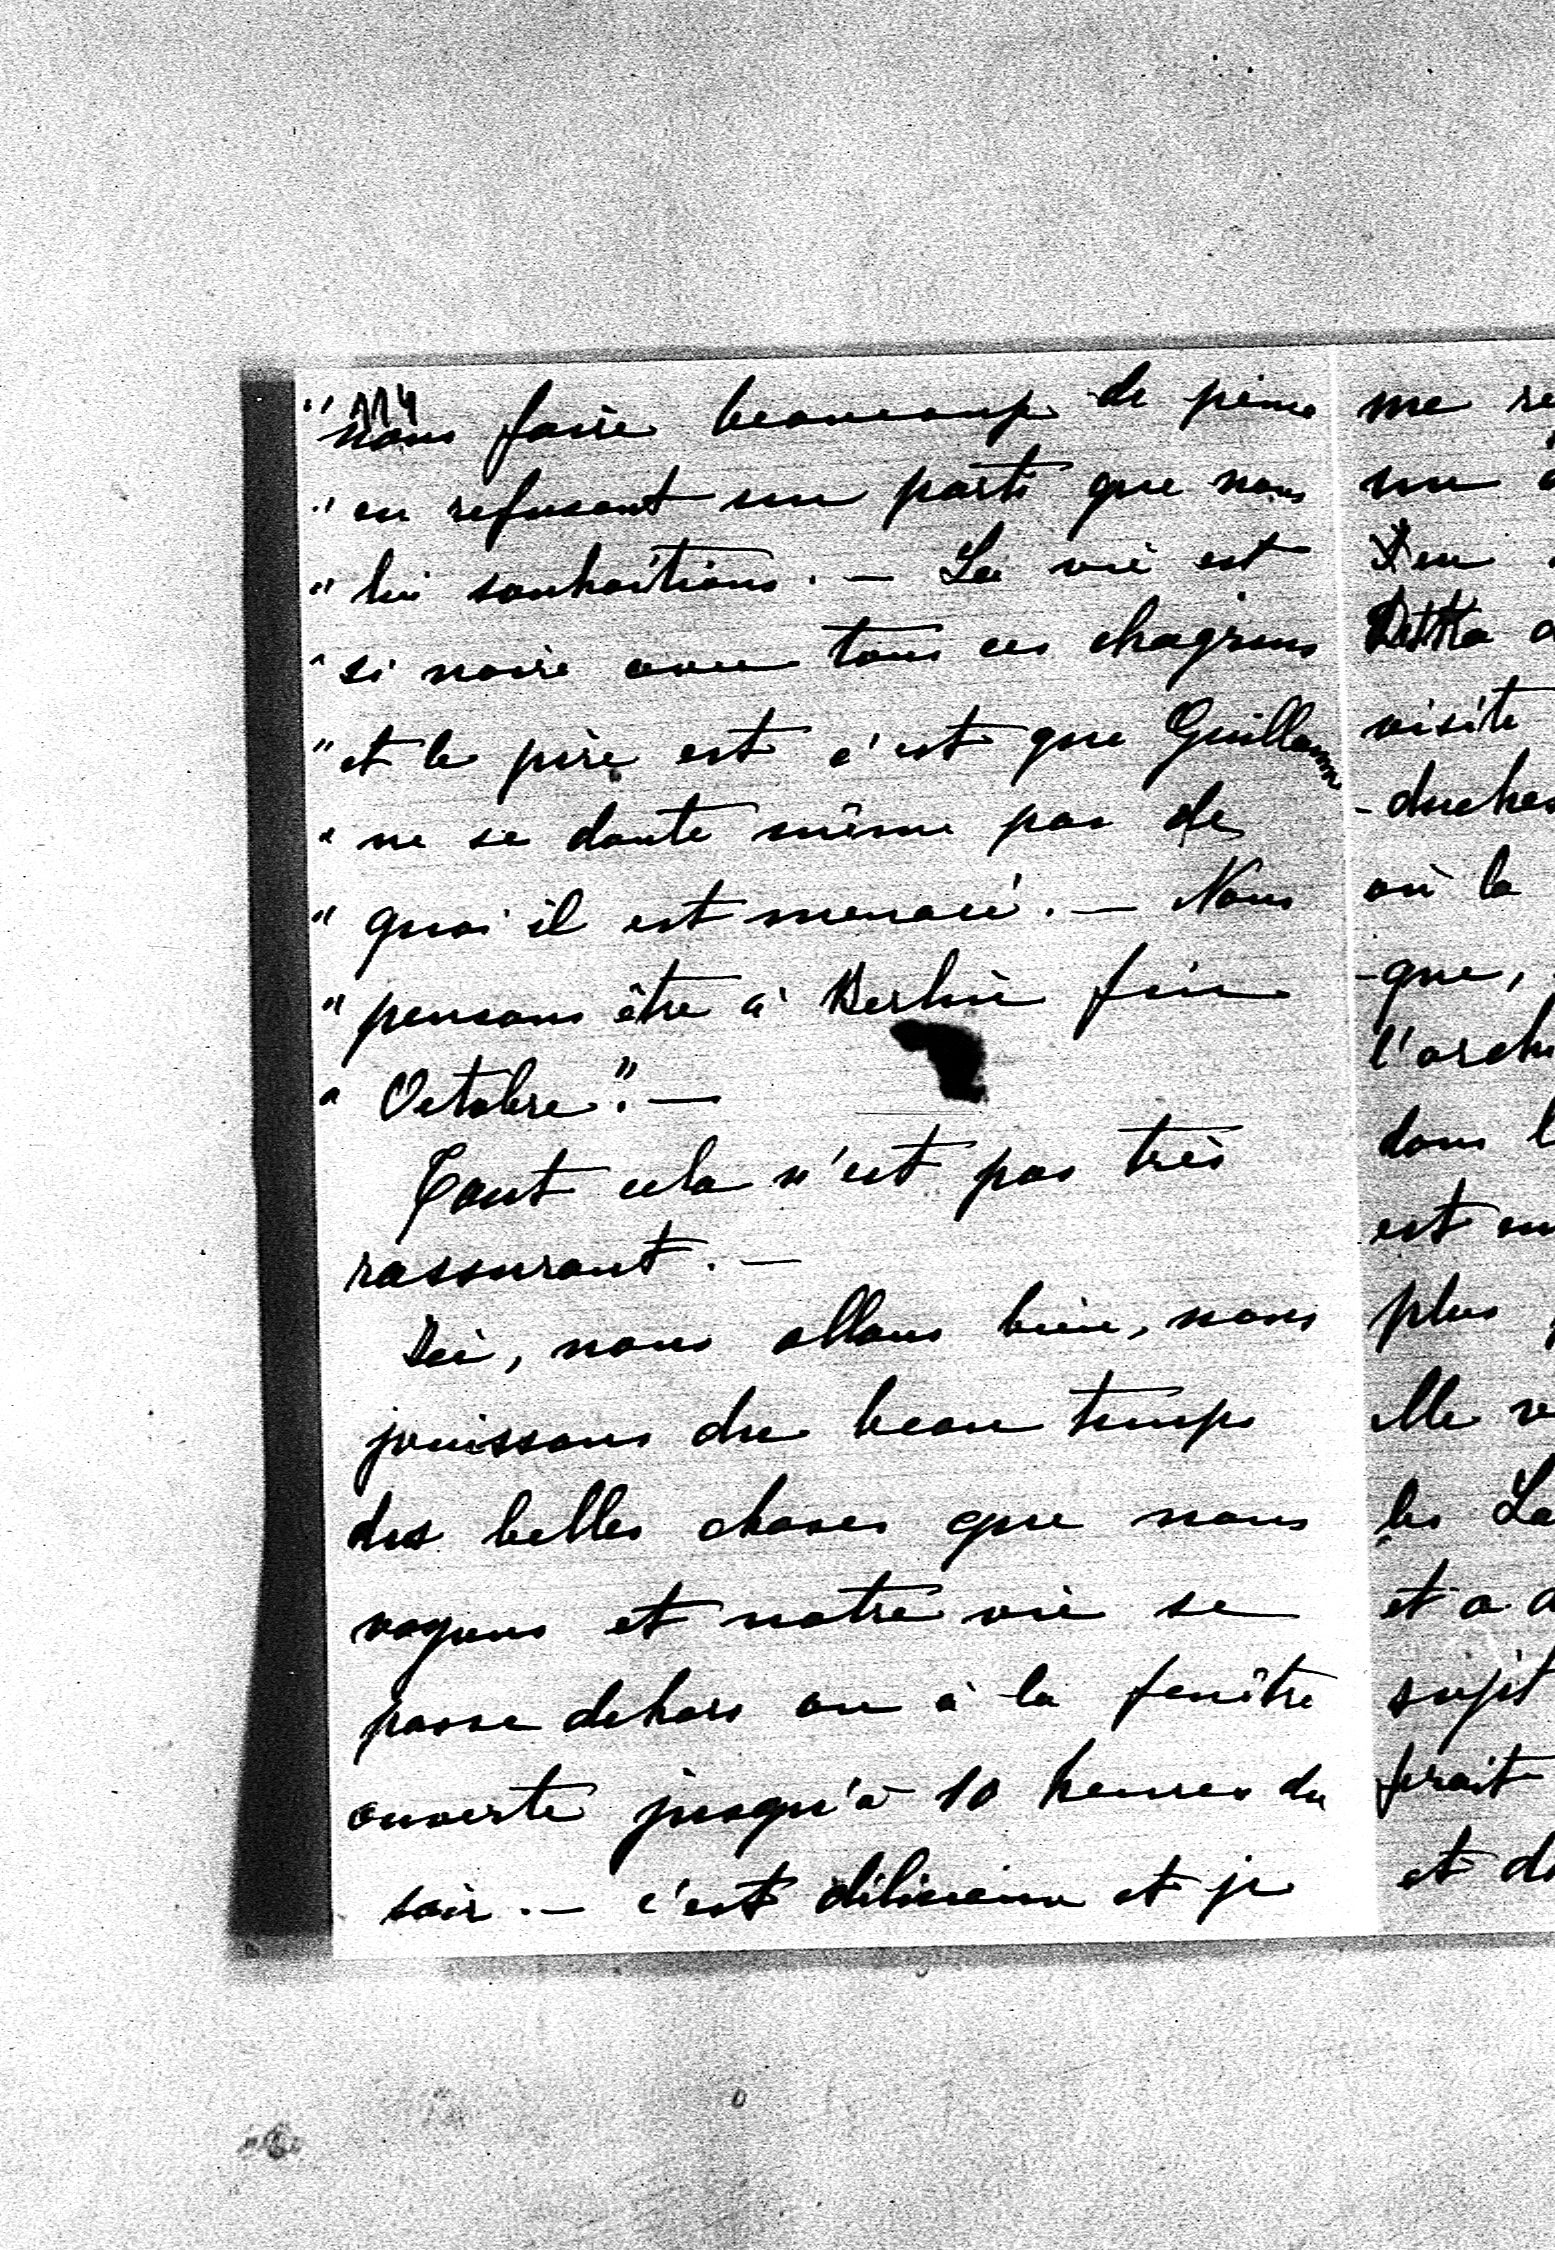 114
" nous faire beaucoup de peine
" en refusant un parti que nous
" lui souhaitions. — La vie est
" si noire avec tous ces chagrins
" et le pire est c'est que Guillaume
" ne se doute même pas de
" quoi il est menacé. — Nous
" pensons être à Berlin fin
" Octobre". —
Tout cela n'est pas très
rassurant. —
Ici, nous allons bien, nous
jouissons du beau temps
des belles choses que nous
voyons et notre vie se
passe dehors ou à la fenêtre
ouverte jusqu'à 10 heures du
soir. — c'est délicieux et je
me re
un
visite
-duches
où la
-que,
l'archi
dans l
est
plus
elle v
les La
et a d
sujet
ferait
et d